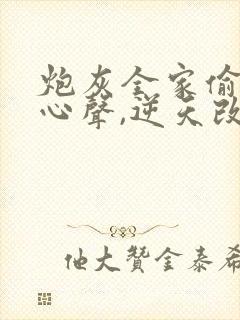 炮灰全家偷
心聲,逆天改
仙大贊金泰希